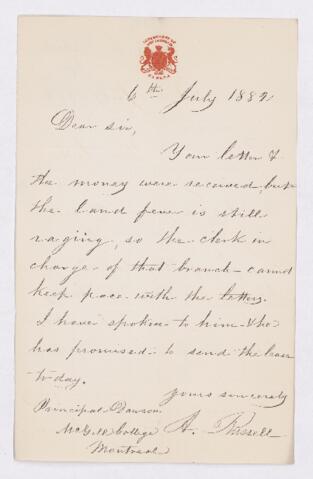 DEPARTMENT OF
6th July 1882
Dear sir,
Your letter &
the money were received, but
the land fever is still
raging, so the clerk in
charge of that branch cannot
keep pace with the letters.
I have spoken to him & he
has promised to send the
to day.
yours sincerely
A. Russell
Principal Dawson
McGill College
Montreal